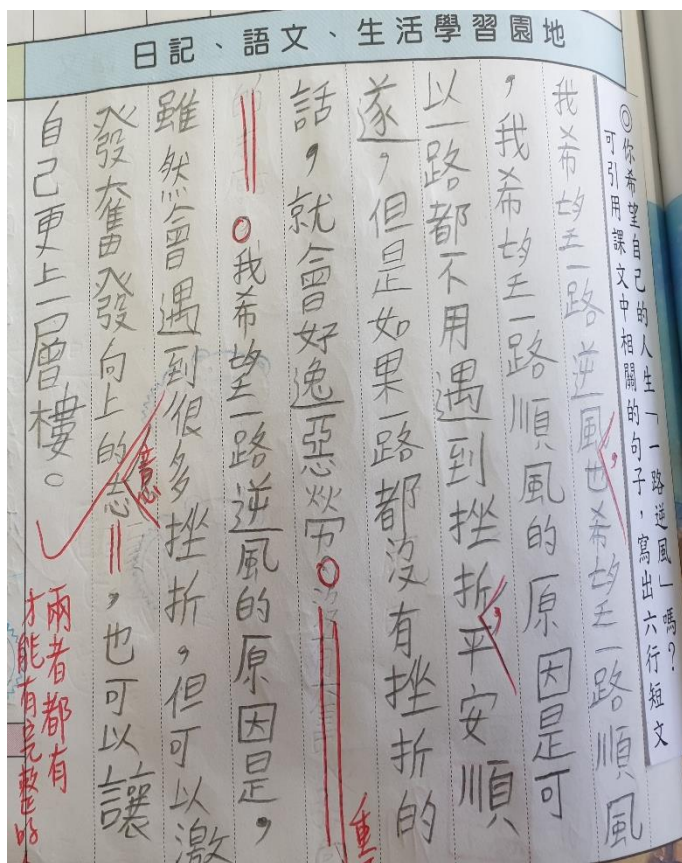 日記、語文、生活學習園地
◎你希望自己的人生「一路逆風」嗎？
可引用課文中相關的句子，寫出六行短文
我希望一路逆風也希望一路順風
，
，我希望一路順風的原因是可
以一路都不用遇到挫折平安順
，
遂，但是如果一路都沒有挫折的
話，就會好逸惡勞。
。我希望一路逆風的原因是，
雖然會遇到很多挫折，但可以激
發奮發向上的志，也可以讓
意
自己更上一層樓。
兩者都有
才能有完整的